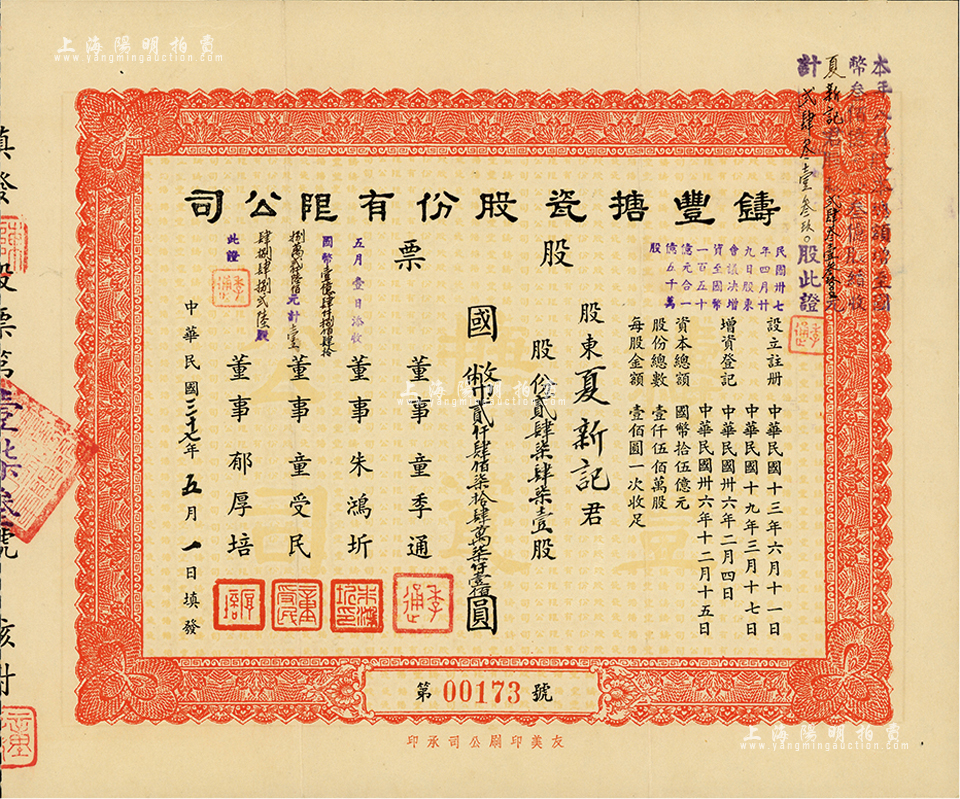 上海陽明拍賣
www.yangmingauction.com
鑄豐搪瓷股份有限公司
股票
設立註册 中華民國十三年六月十一日
中華民國十九年三月十七日
增資登記 中華民國卅六年二月四日
中華民國卅六年十二月十五日
資本總額 國幣拾五億元
股份總數 壹仟伍佰萬股
每股金額 壹佰圓一次收足
股東夏新記君
股份貳肆柒肆柒壹股
國幣貳仟肆佰柒拾肆萬柒仟壹佰圓
董事 童季通
董事 朱鴻圻
董事 童受民
董事 郁厚培
中華民國三十七年五月一日填發
民國卅七
年四月廿
九日股東
會議決增
資至國幣
一百五十
億元合一
億五千萬
股
五月壹日添收
國幣壹億肆仟捌佰肆拾
捌萬貳仟陸佰元計壹
肆捌肆捌貳陸股
此證
夏新記君
計貳肆柒壹叁玖〇股此證
上海陽明拍賣
www.yangmingauction.com
第 00173 號
友美印刷公司承印
填發股票第壹柒叁號
核對
上海陽明拍賣
www.yangmingauction.com